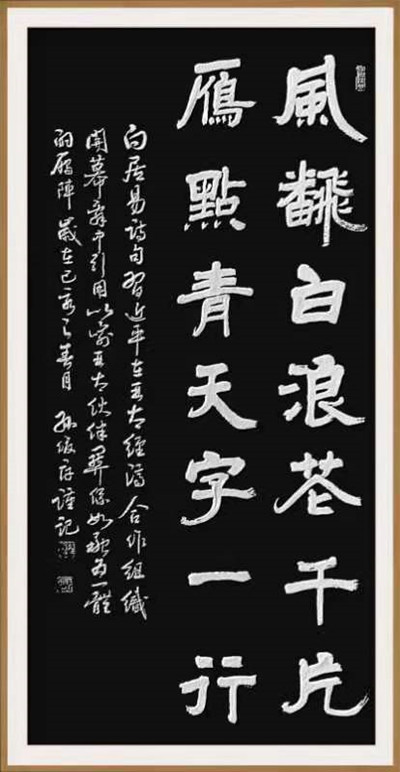 風飜白浪花千片
鴈點青天字一行
白居易詩句習近平在亞太經濟合作組織
開幕辭中引用以喻亞太伙伴關係如融为一體
的鴈陣 歲在己亥之春月 孫謹記